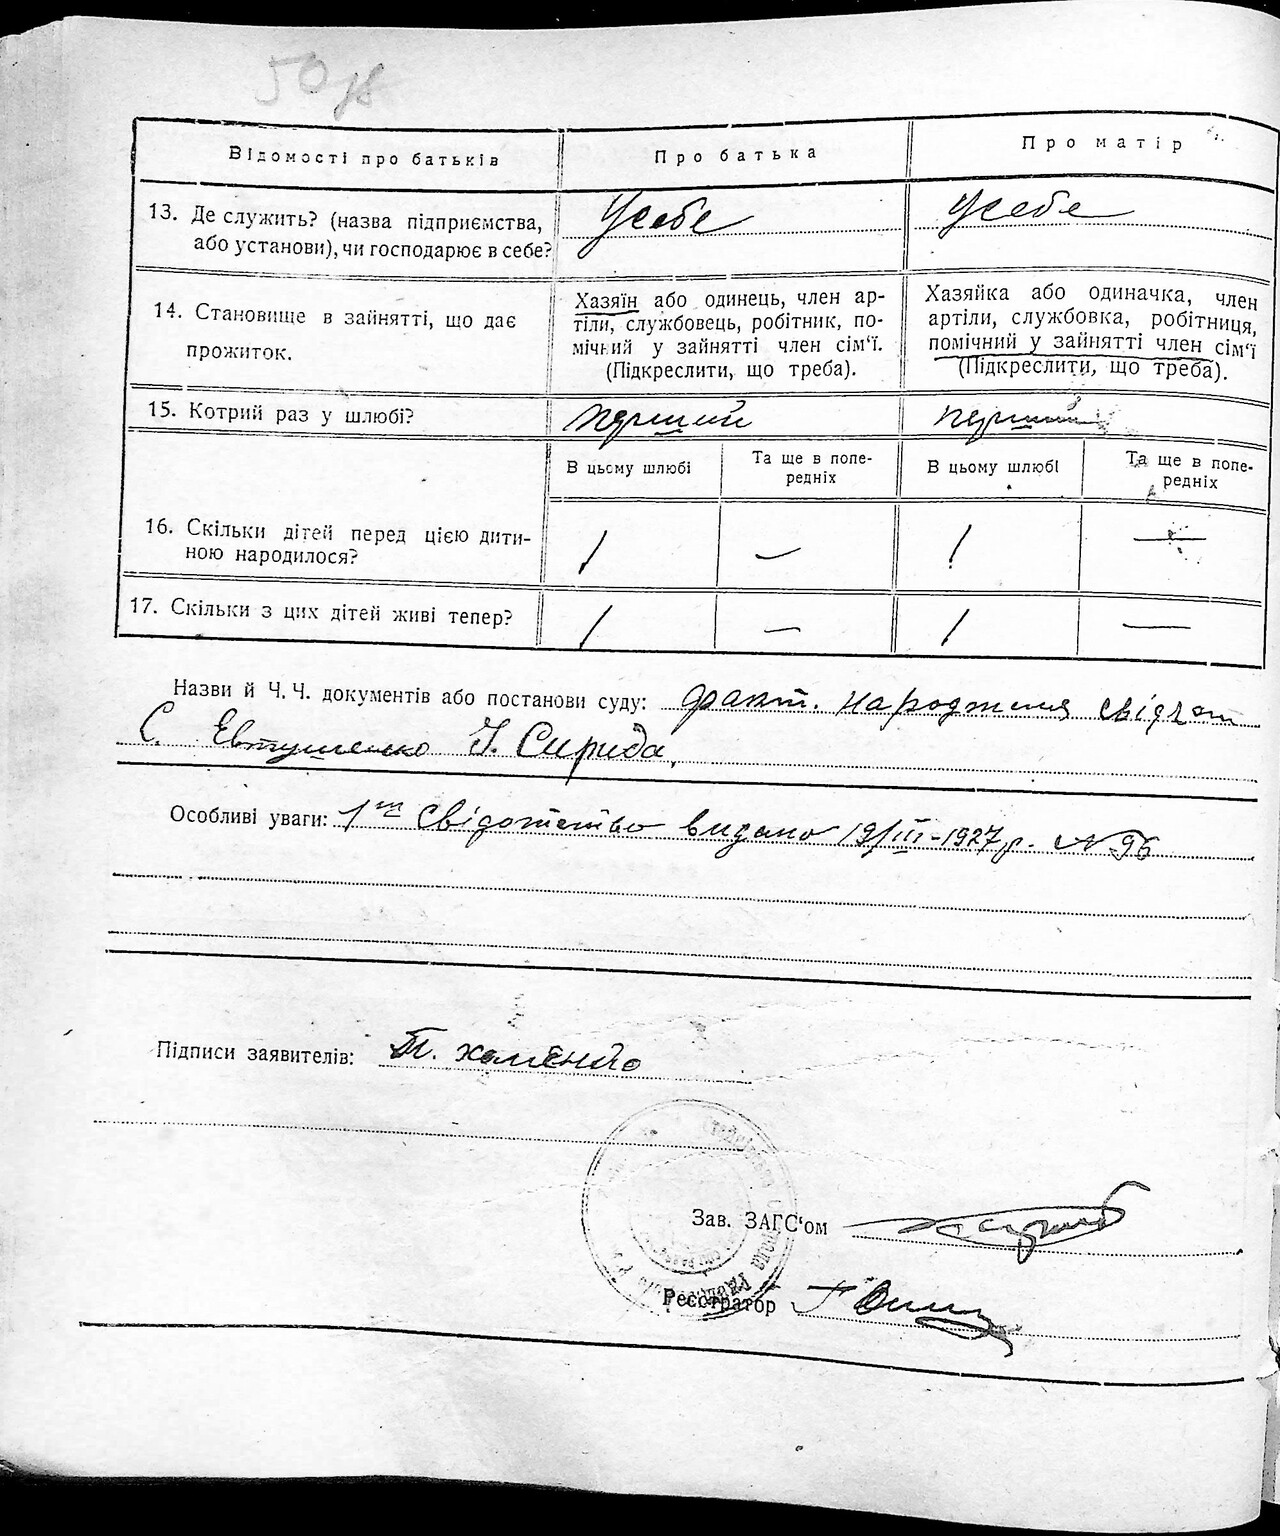 50 зв
Відомості про батьків
Про батька
Про матір
13. Де служить? (назва підприємства,
або установи), чи господарює в себе?
У себе
У себе
14. Становище в зайнятті, що дає
прожиток.
Хазяїн або одинець, член ар-
тіли, службовець, робітник, по-
мічний у зайнятті член сім'ї.
(Підкреслити, що треба).
Хазяйка або одиначка, член
артіли, службовка, робітниця,
помічний у зайнятті член сім'ї
(Підкреслити, що треба).
15. Котрий раз у шлюбі?
перший
перший
В цьому шлюбі
Та ще в попе-
редніх
В цьому шлюбі
Та ще в попе-
редніх
16. Скільки дітей перед цією дити-
ною народилося?
1
—
1
—
17. Скільки з цих дітей живі тепер?
1
—
1
—
Назви й Ч.Ч. документів або постанови суду: факт. народження свідчат
С. Евтушенко І. Сирида,
Особливі уваги: 1ш Свідотство видано 19/III-1927 р. N 96
Підписи заявителів:
Зав. ЗАГС'ом
Реєстратор